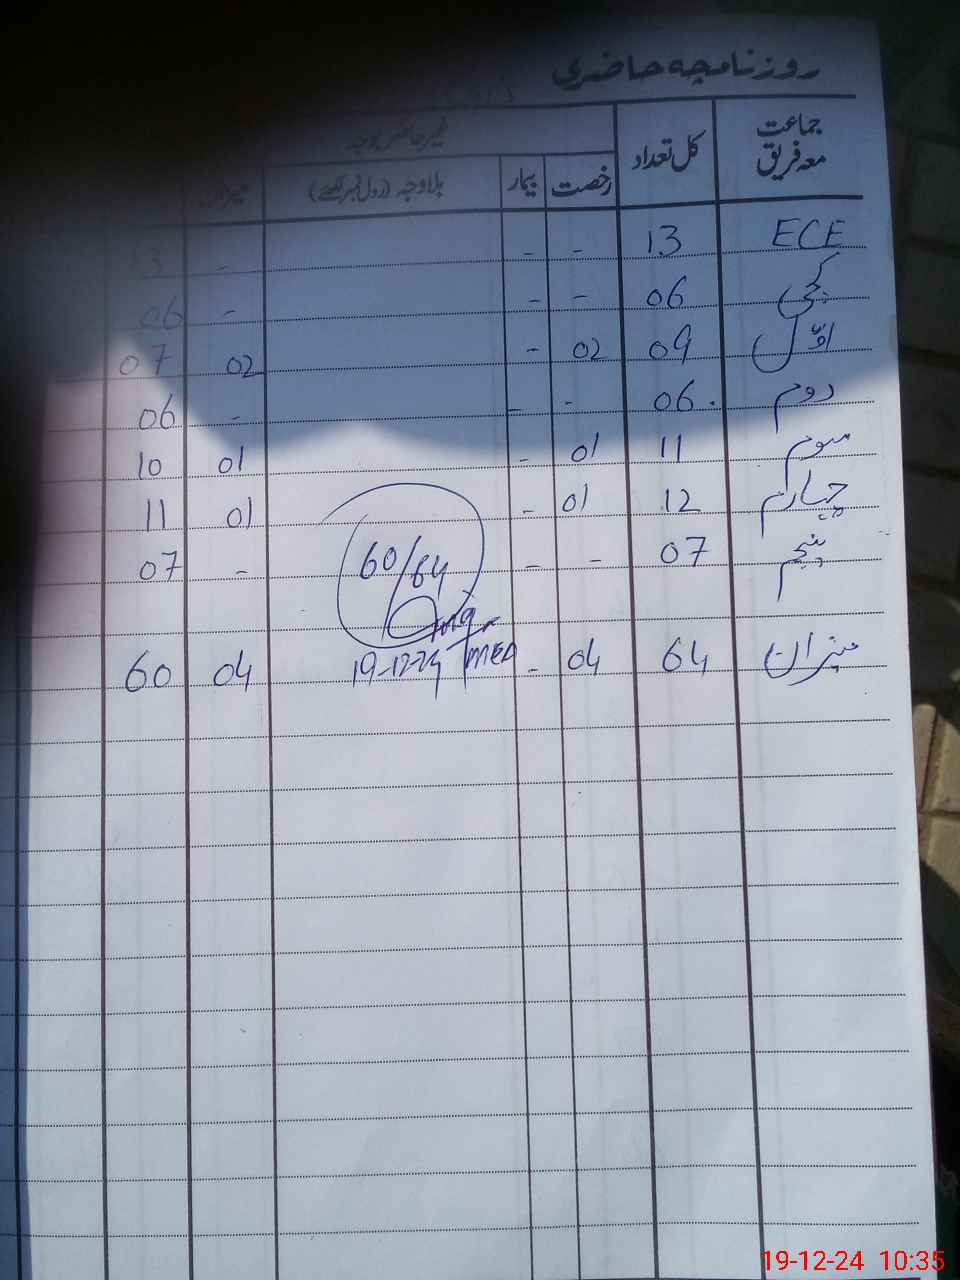 روزنامچہ حاضری
جماعت معہ فریق کل تعداد غیر حاضر بوجہ
رخصت بیمار بلاوجہ (رول نمبر لکھئے) میزان
ECE 13 - - - 13
کچی 06 - - - 06
اوّل 09 02 - 02 07
دوم 06 - - - 06
سوم 11 01 - 01 10
چہارم 12 01 - 01 11
پنجم 07 - - - 07
60/64
میزان 64 04 - 04 60
19-12-24 MEA
19-12-24 10:35